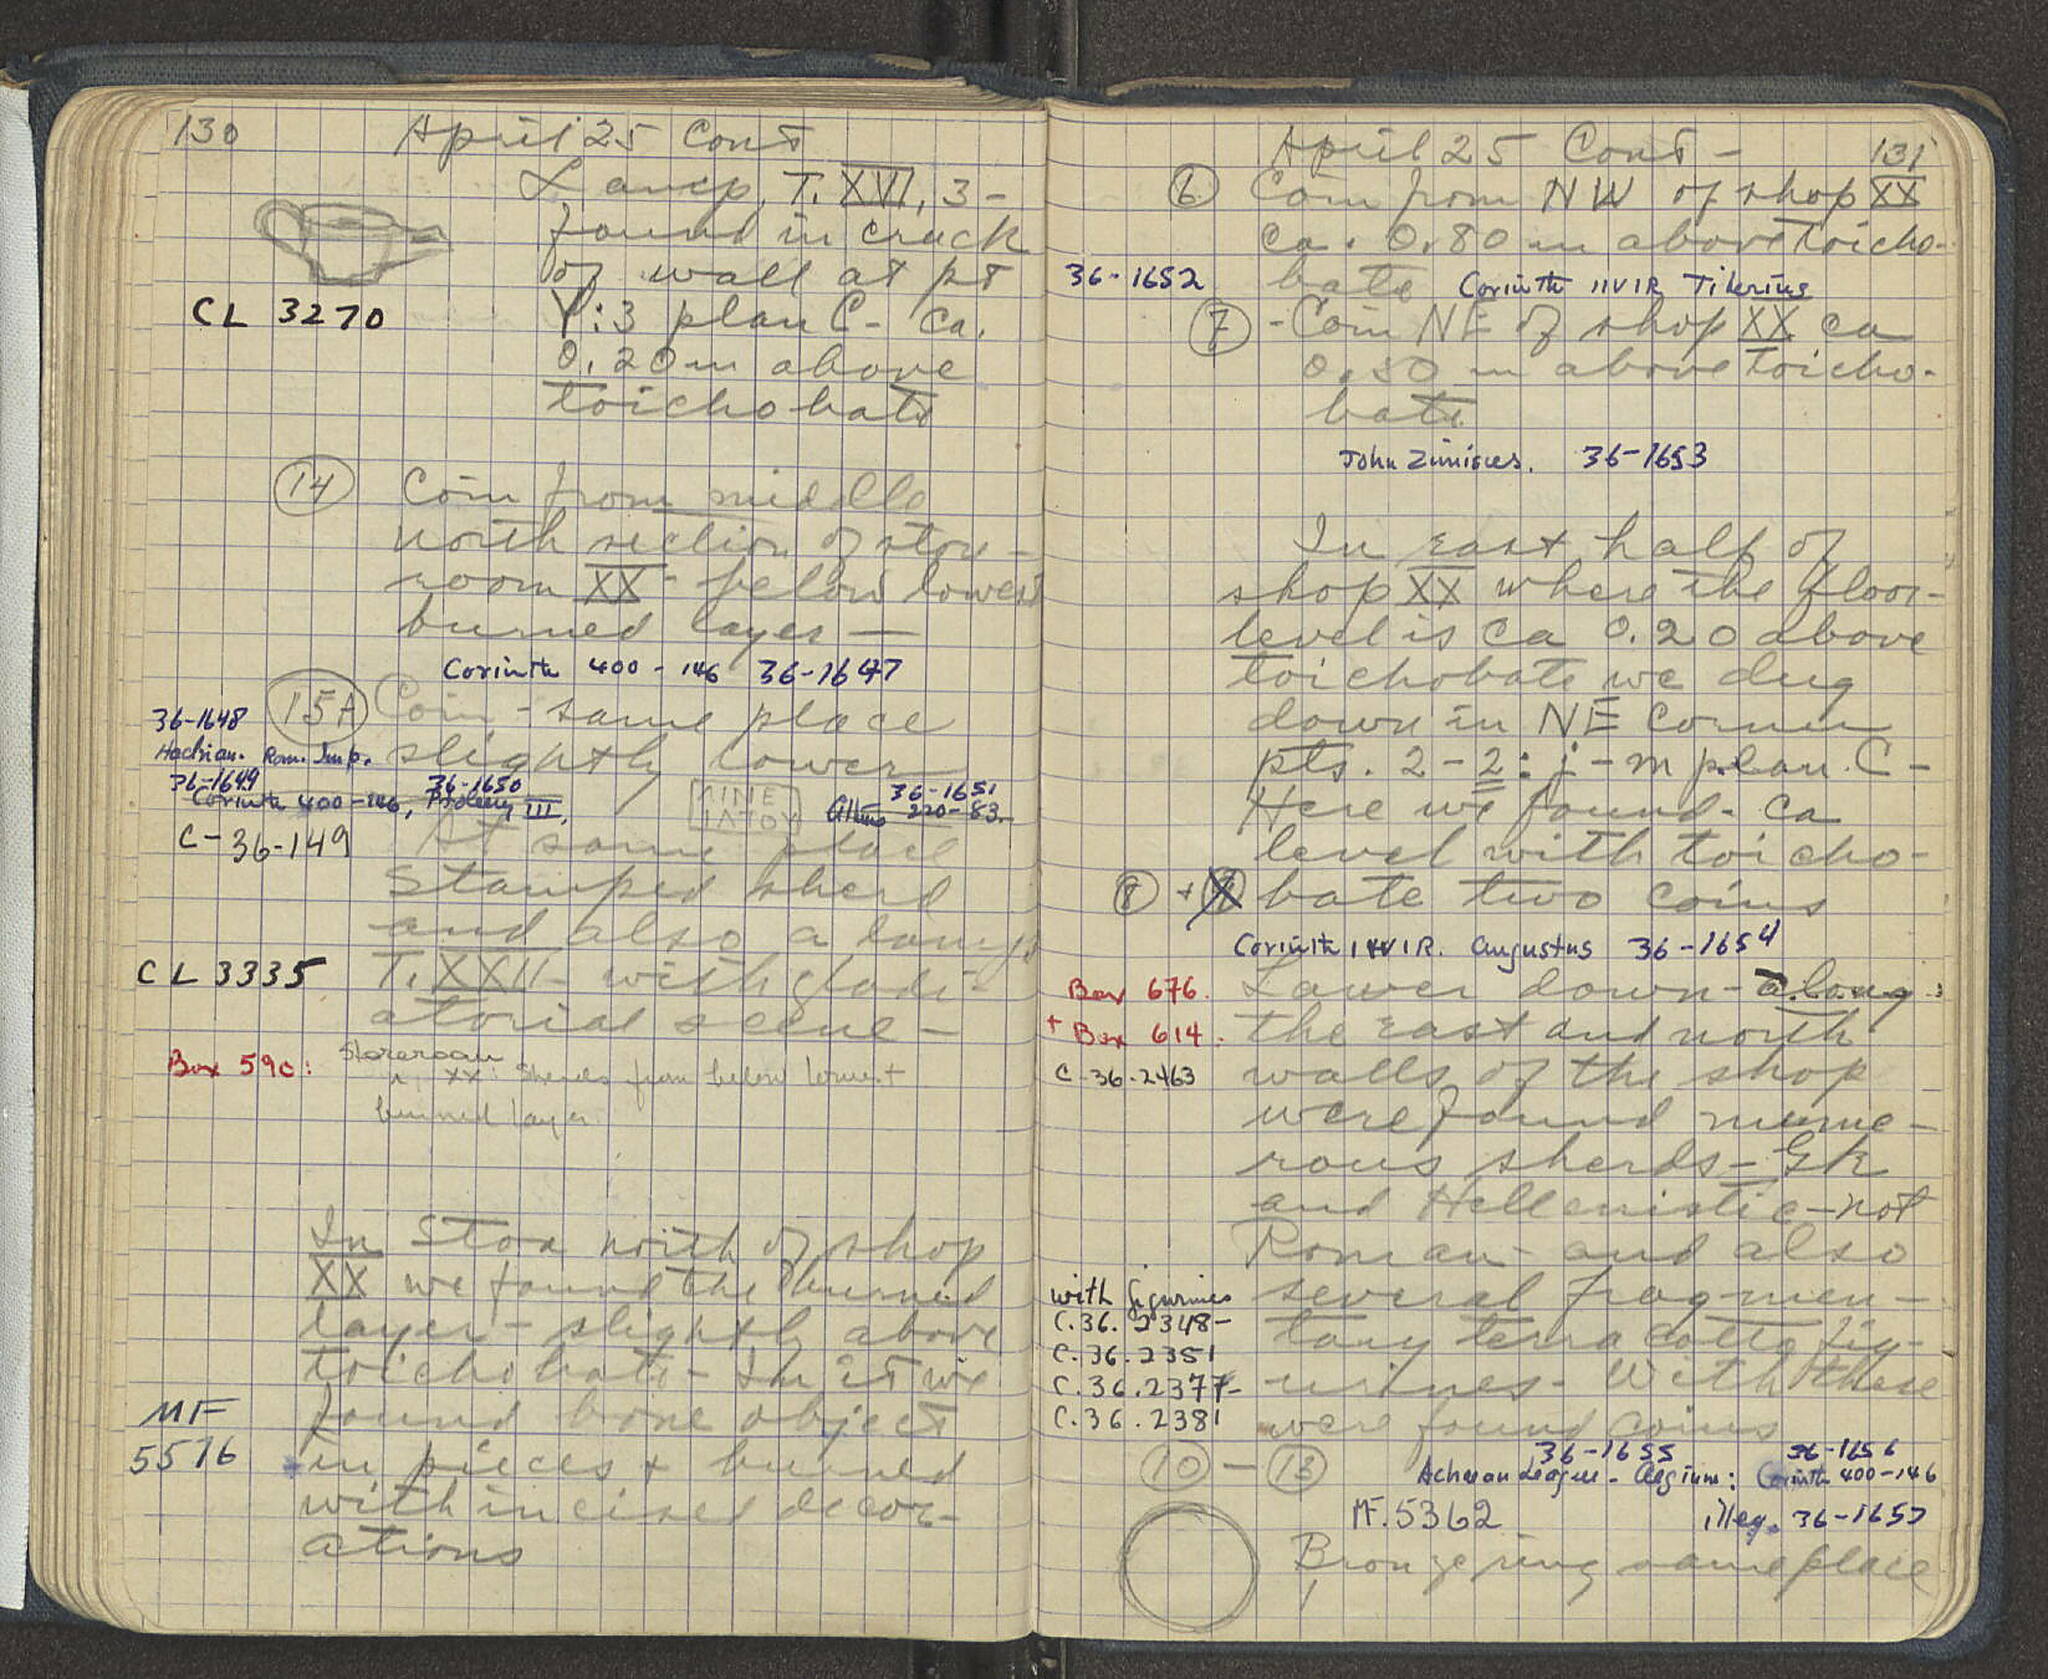 130 April 25 Cont
Lamp, T. XVI, 3-
found in crack
of wall at pt
CL 3270
Y:3 plan C- ca.
0.20 m above
toichobate
14 Coin from middle
north section of store-
room XX - below lowest
burned layer —
Corinth 400-146 36-1647
15A Coin - same place
36-1648
slightly lower
Hadrian. Rom. Imp.
36-1649 36-1650 36-1651
Corinth 400-146, Ptolemy III, Athens 220-83.
C-36-149
At same place
stamped sherd
and also a lamp
CL 3335
T. XXII - with gladi-
atorial scene -
Box 590: Storeroom
XX: Sherds from below lowest
burned layer.
In Stoa north of shop
XX we found the burned
layer - slightly above
toichobate - In it we
MF
5576
found bone object
in pieces + burned
with incised decor-
ations
April 25 Cont - 131
6 Coin from NW of shop XX
ca. 0.80 m above toicho-
36-1652 bate Corinth IIVIR Tiberius
7 - Coin NE of shop XX ca
0.80 m above toicho-
bate
John Zimisces. 36-1653
In east half of
shop XX where the floor-
level is ca 0.20 above
toichobate we dug
down in NE corner
pts. 2-2: j-m plan C-
Here we found - ca
level with toicho-
8 + bate two coins
Corinth IIVIR. Augustus 36-1654
Box 676.
Lower down - along
+ Box 614.
the east and north
C-36-2463
walls of the shop
were found nume-
rous sherds - Gk
and Hellenistic - not
Roman - and also
with figurines
several fragmen-
C.36.2348-
tary terra cotta fig-
C.36.2351
C.36.2377-
urines. With these
C.36.2381
were found coins
10 - 13 36-1655 36-1656
Achaean League - Aegium: Corinth 400-146
MF.5362 illeg. 36-1657
Bronze ring same place